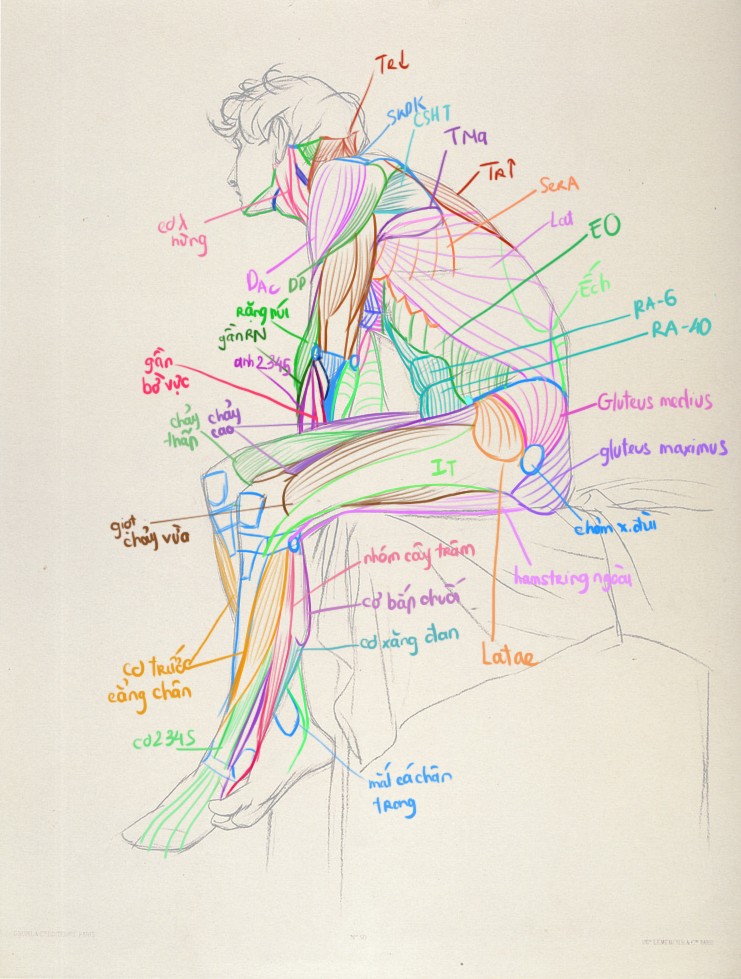 TR↓
SWĐK
CSHT
TMa
TR↑
SerA
Lat
EO
Ếch
cơ λ
hững
DAC
DP
RA-6
RA-40
Rặng núi
gân RN
anh 2345
gân
bờ vực
chảy
thấp
chảy
cao
Gluteus medius
gluteus maximus
IT
giọt
chảy vừa
chỏm x.đùi
nhóm cây trâm
hamstring ngoài
cơ bắp chuối
cơ xăng đan
Latae
cơ trước
cẳng chân
cơ 2345
mắt cá chân
trong